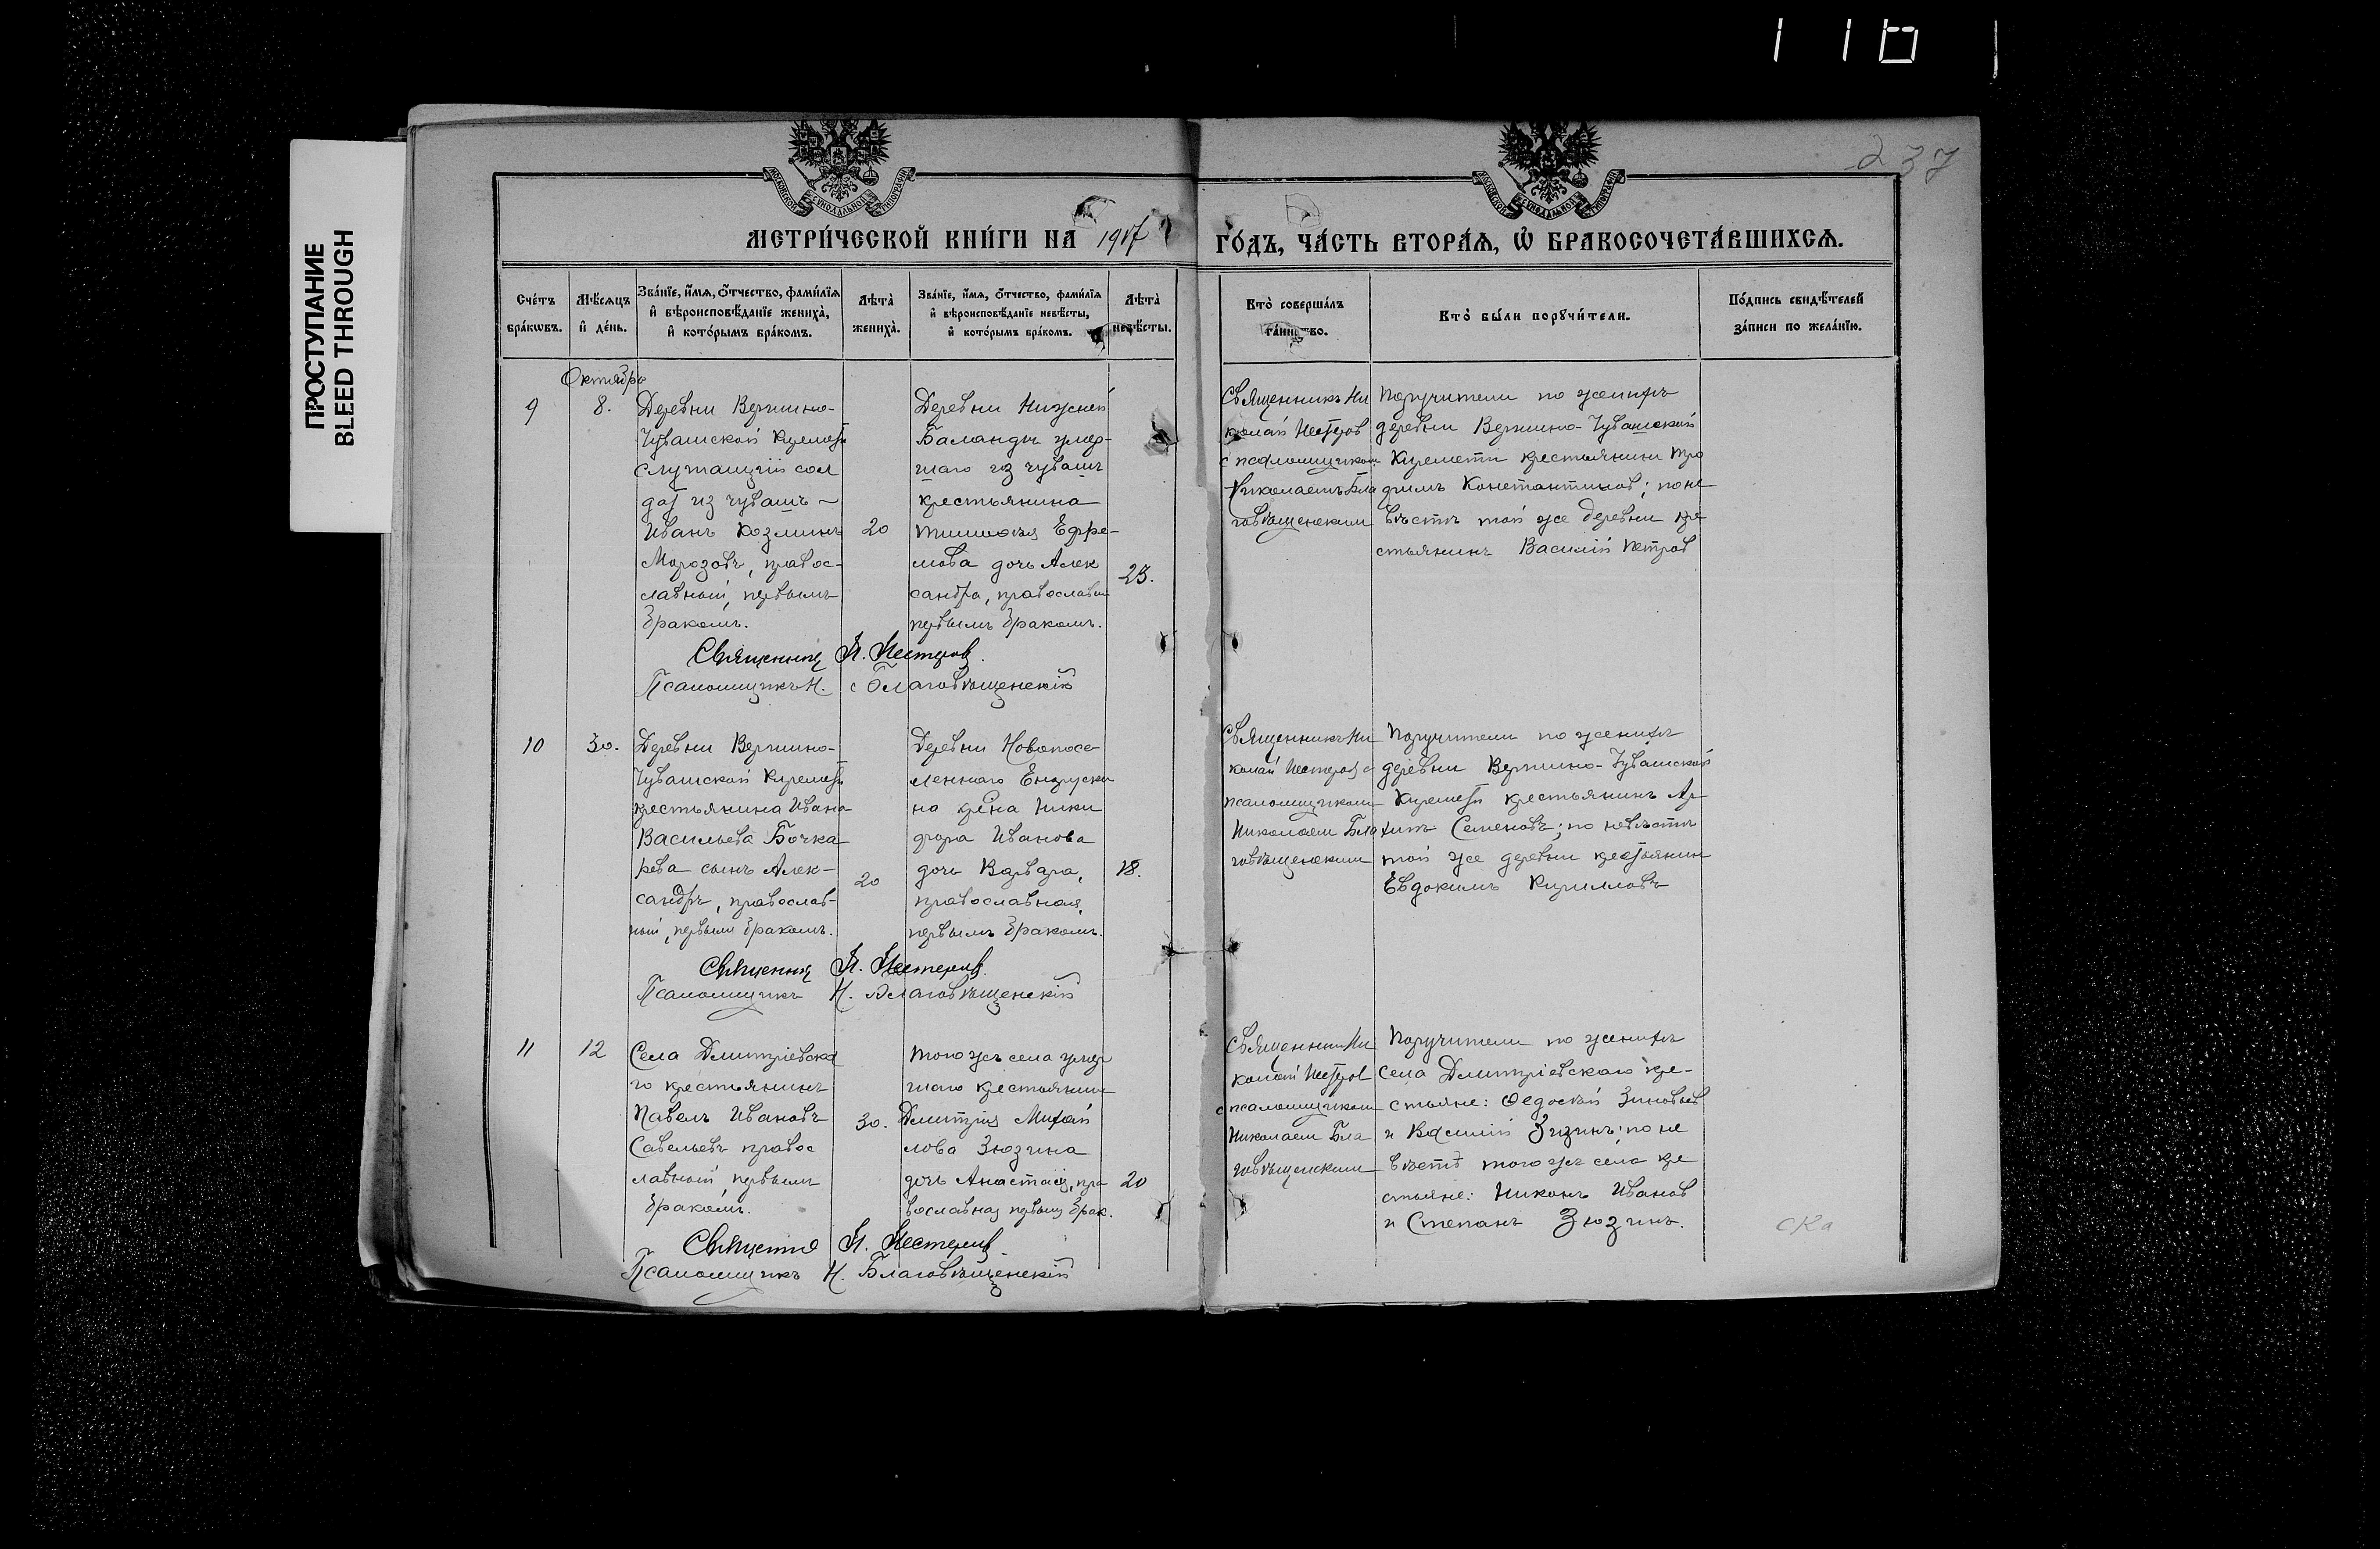 116
ПРОСТУПАНИЕ
BLEED THROUGH
237
МЕТРИ́ЧЕСКОЙ КНИ́ГИ НА 1917
ГО́ДЪ, ЧА́СТЬ ВТОРА́Я, Ѿ БРАКОСОЧЕТА́ВШИХСЯ.
Сче́тъ бра́кѡвъ.
Мѣ́сяцъ и҆ де́нь.
Зва́нїе, и҆́мя, ѻ҆́тчество, фами́лїя и҆ вѣроисповѣ́данїе жениха̀, и҆ кото́рымъ бра́комъ.
Лѣта̀ жениха̀.
Зва́нїе, и҆́мя, ѻ҆́тчество, фами́лїя и҆ вѣроисповѣ́данїе невѣ́сты, и҆ кото́рымъ бра́комъ.
Лѣта̀ невѣ́сты.
Кто̀ соверша́лъ та́инство.
Кто̀ бы́ли порꙋчи́тели.
По́дпись свидѣ́телей за́писи по жела́нїю.
Октября
9
8.
Деревни Вершино-
Чувашской Киремети
служащий сол
дат из чувашъ
Иванъ Козминъ
Морозовъ, правос-
лавный, первымъ
бракомъ.
20
Деревни Нижней
Баланды умер-
шаго из чувашъ
крестьянина
Тимофея Ефре-
мова дочь Алек
сандра, православн
первымъ бракомъ.
23.
Священникъ Ни
колай Нестеров
с псаломщиком
Николаемъ Бла
говѣщенским
Поручители по женихѣ
деревни Вершино-Чувашской
Киремети крестьянин Тро
фимъ Константинов; по не
вѣстѣ той же деревни кре
стьянинъ Василий Петров
Священник Н. Нестеров.
Псаломщикъ Н. Благовѣщенскій
10
30.
Деревни Вершино-
Чувашской Киремети
крестьянина Ивана
Васильева Бочка
рева сынъ Алек-
сандръ, православ-
ный, первым бракомъ.
20
Деревни Новопосе
леннаго
Ники
фора Иванова
дочь Варвара,
православная,
первымъ бракомъ.
18.
Священникъ Ни
колай Нестеров с
псаломщиком
Николаем Бла
говѣщенским
Поручители по женихѣ
деревни Вершино-Чувашской
Киремети крестьянинъ
Семеновъ; по невѣстѣ
той же деревни крестьянин
Евдокимъ Кирилловъ
Священник Н. Нестеров.
Псаломщикъ Н. Благовѣщенскій
11
12
Села Дмитріевска
го крестьянинъ
Павелъ Ивановъ
Савельевъ правос
лавный, первымъ
бракомъ.
30.
Того же села умер
шаго крестьянина
Дмитрия Михай
лова Зюзина
дочь Анастасия, пра
вославная первым брак.
20
Священник Ни
колай Нестеров
с псаломщиком
Николаем Бла
говѣщенским
Поручители по женихѣ
села Дмитріевскаго кре-
стьяне: Ѳедосѣй Зиновьев
и Василий Зизинъ; по не
вѣстѣ того же села кре
стьяне: Никонъ Иванов
и Степанъ Зюзинъ.
Священник Н. Нестеров
Псаломщикъ Н. Благовѣщенскій